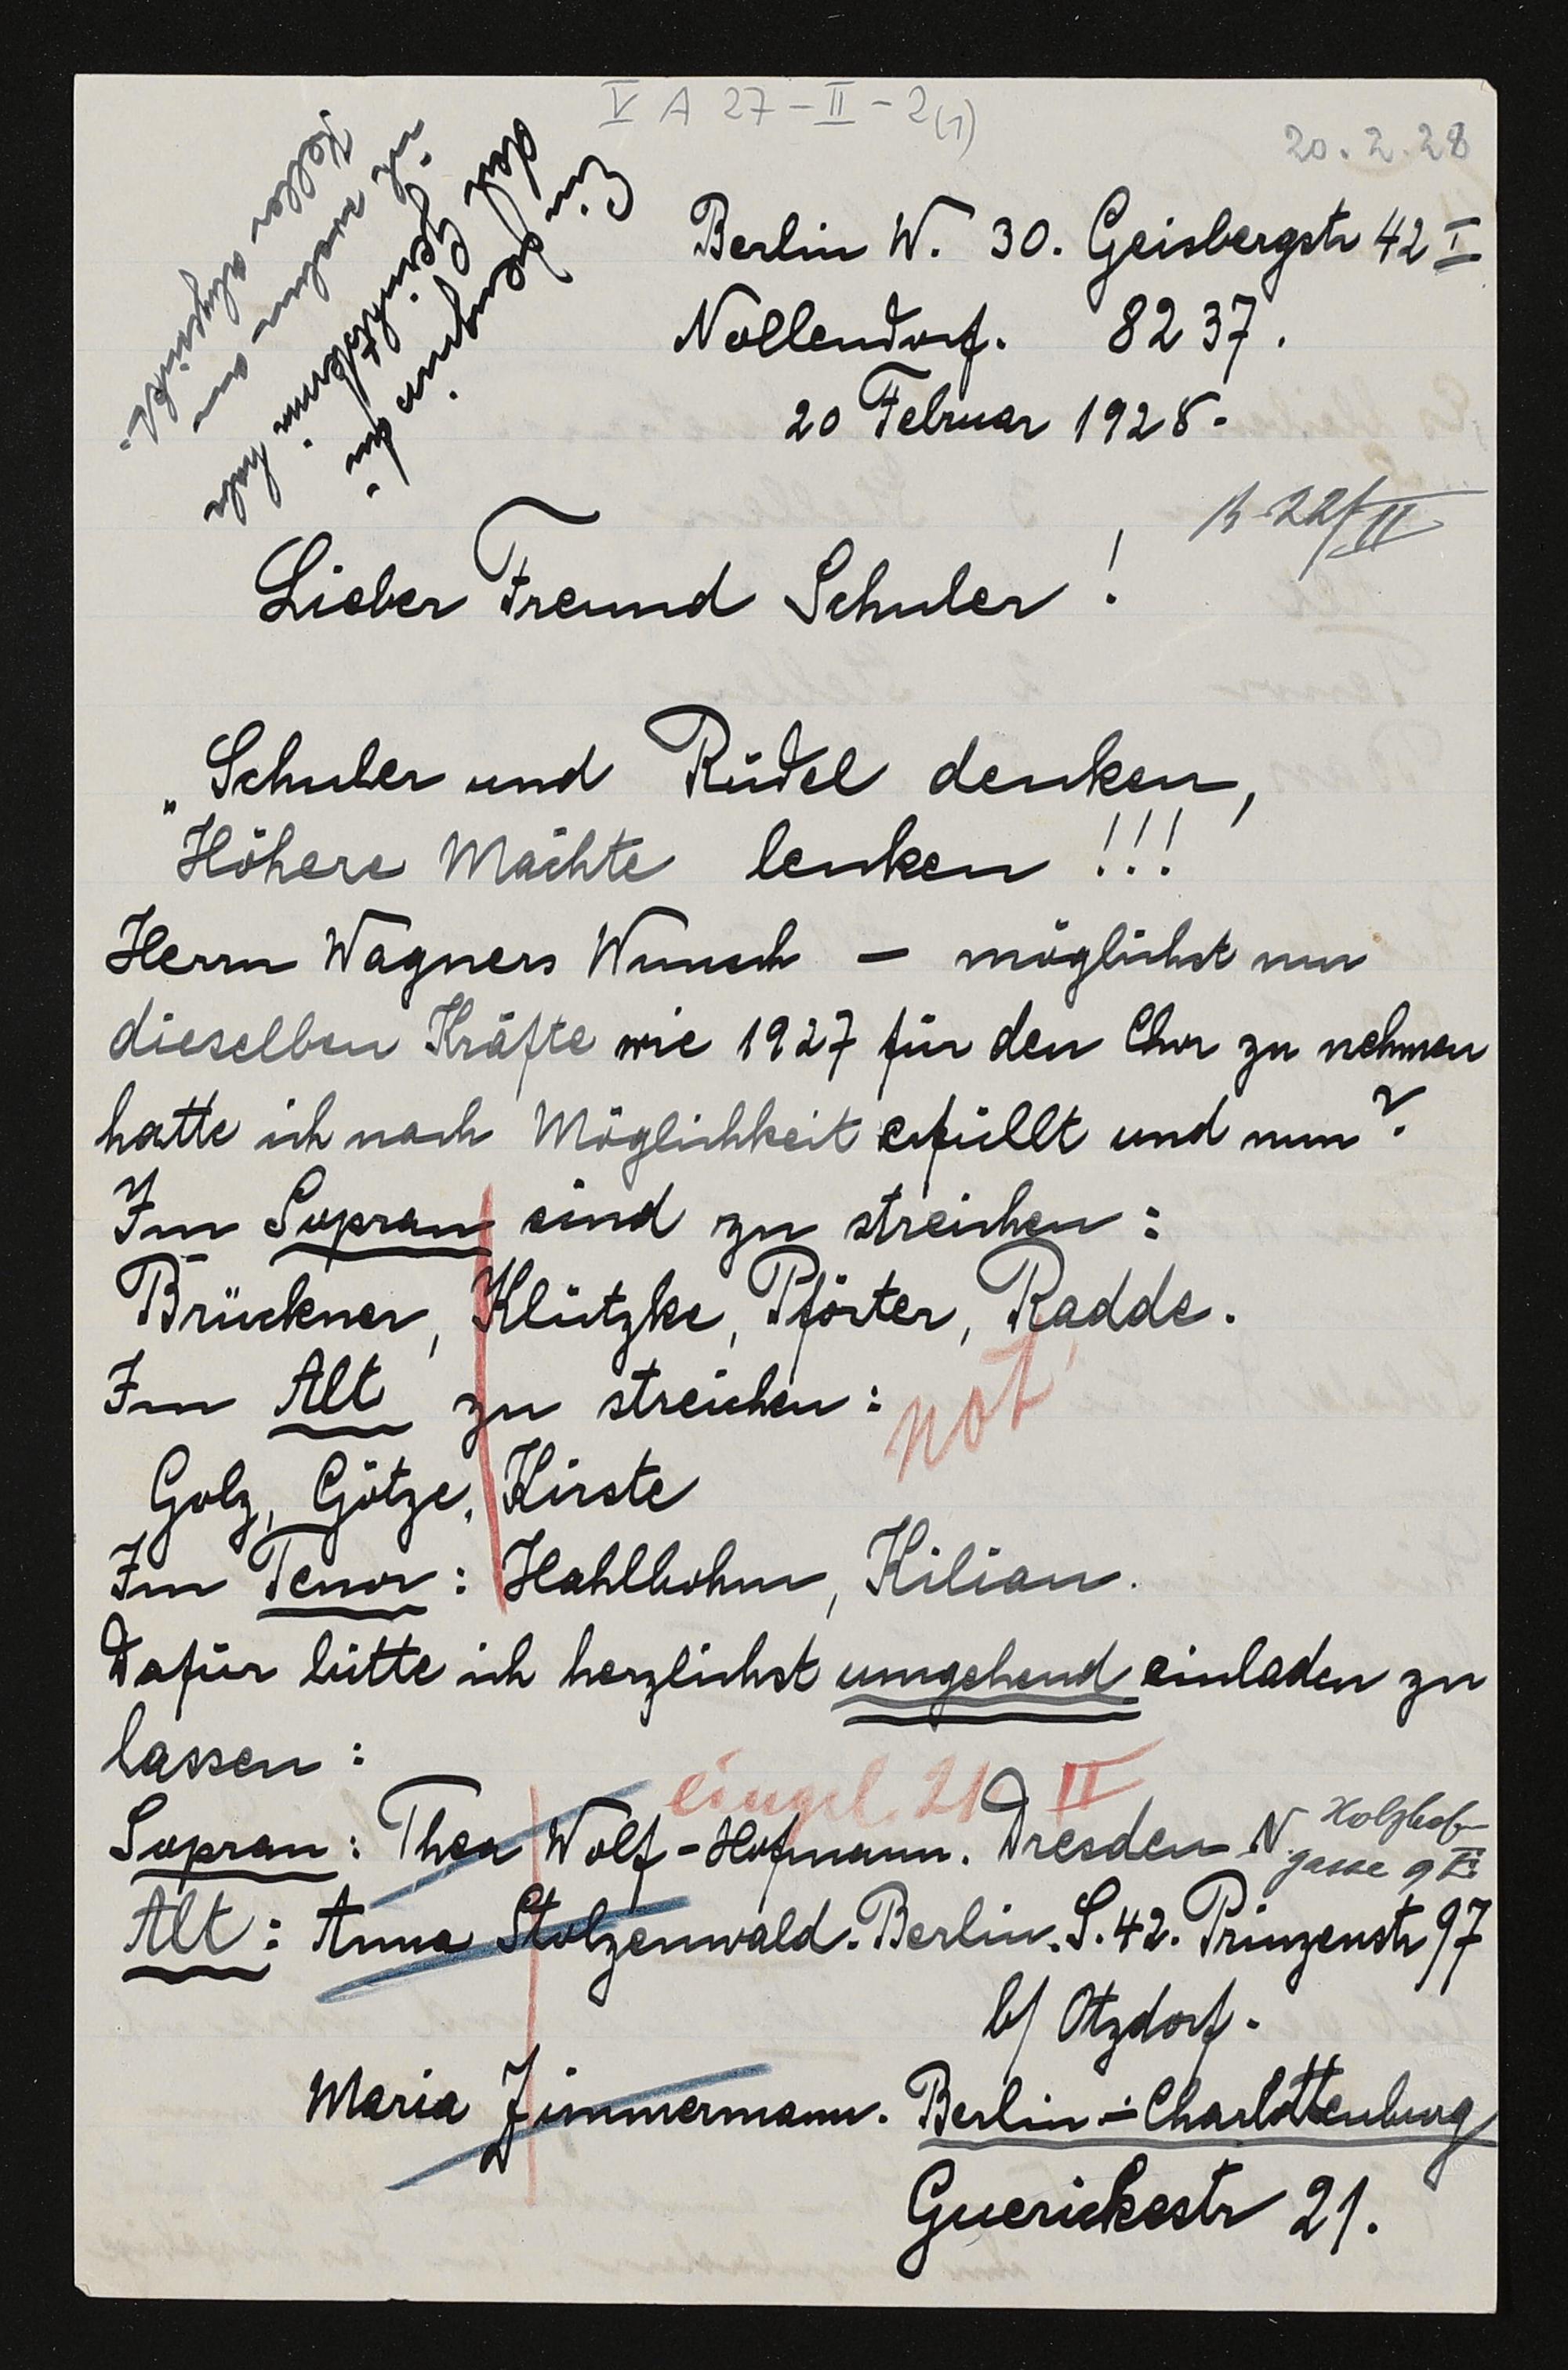 V A 27-II-2(1)
20.2.28
Berlin W. 30. Geisbergstr 42 I
Nollendorf. 8237.
20 Februar 1928.
Ein
habe
ich an
abgeschickt.
B 22/II
Lieber Freund Schuler!
„Schuler und Rüdel denken,
Höhere Mächte lenken!!!
Herrn Wagners Wunsch – möglichst nur
dieselben Kräfte wie 1927 für den Chor zu nehmen
hatte ich nach Möglichkeit erfüllt und nun?
Im Sopran sind zu streichen:
Brückner, Klützke, Pförter, Radde.
Im Alt zu streichen:
not
Golz, Götze, Kirste
Im Tenor: Hahlbohm, Kilian.
Dafür bitte ich herzlichst umgehend einladen zu
lassen:
eingel. 21 II
Sopran: Thea Wolf-Hofmann. Dresden N. Holzhof-
gasse 9 II.
Alt: Anna Stolzenwald. Berlin. S.42. Prinzenstr 97
b/ Otzdorf.
Maria Zimmermann. Berlin-Charlottenburg
Guerickestr 21.